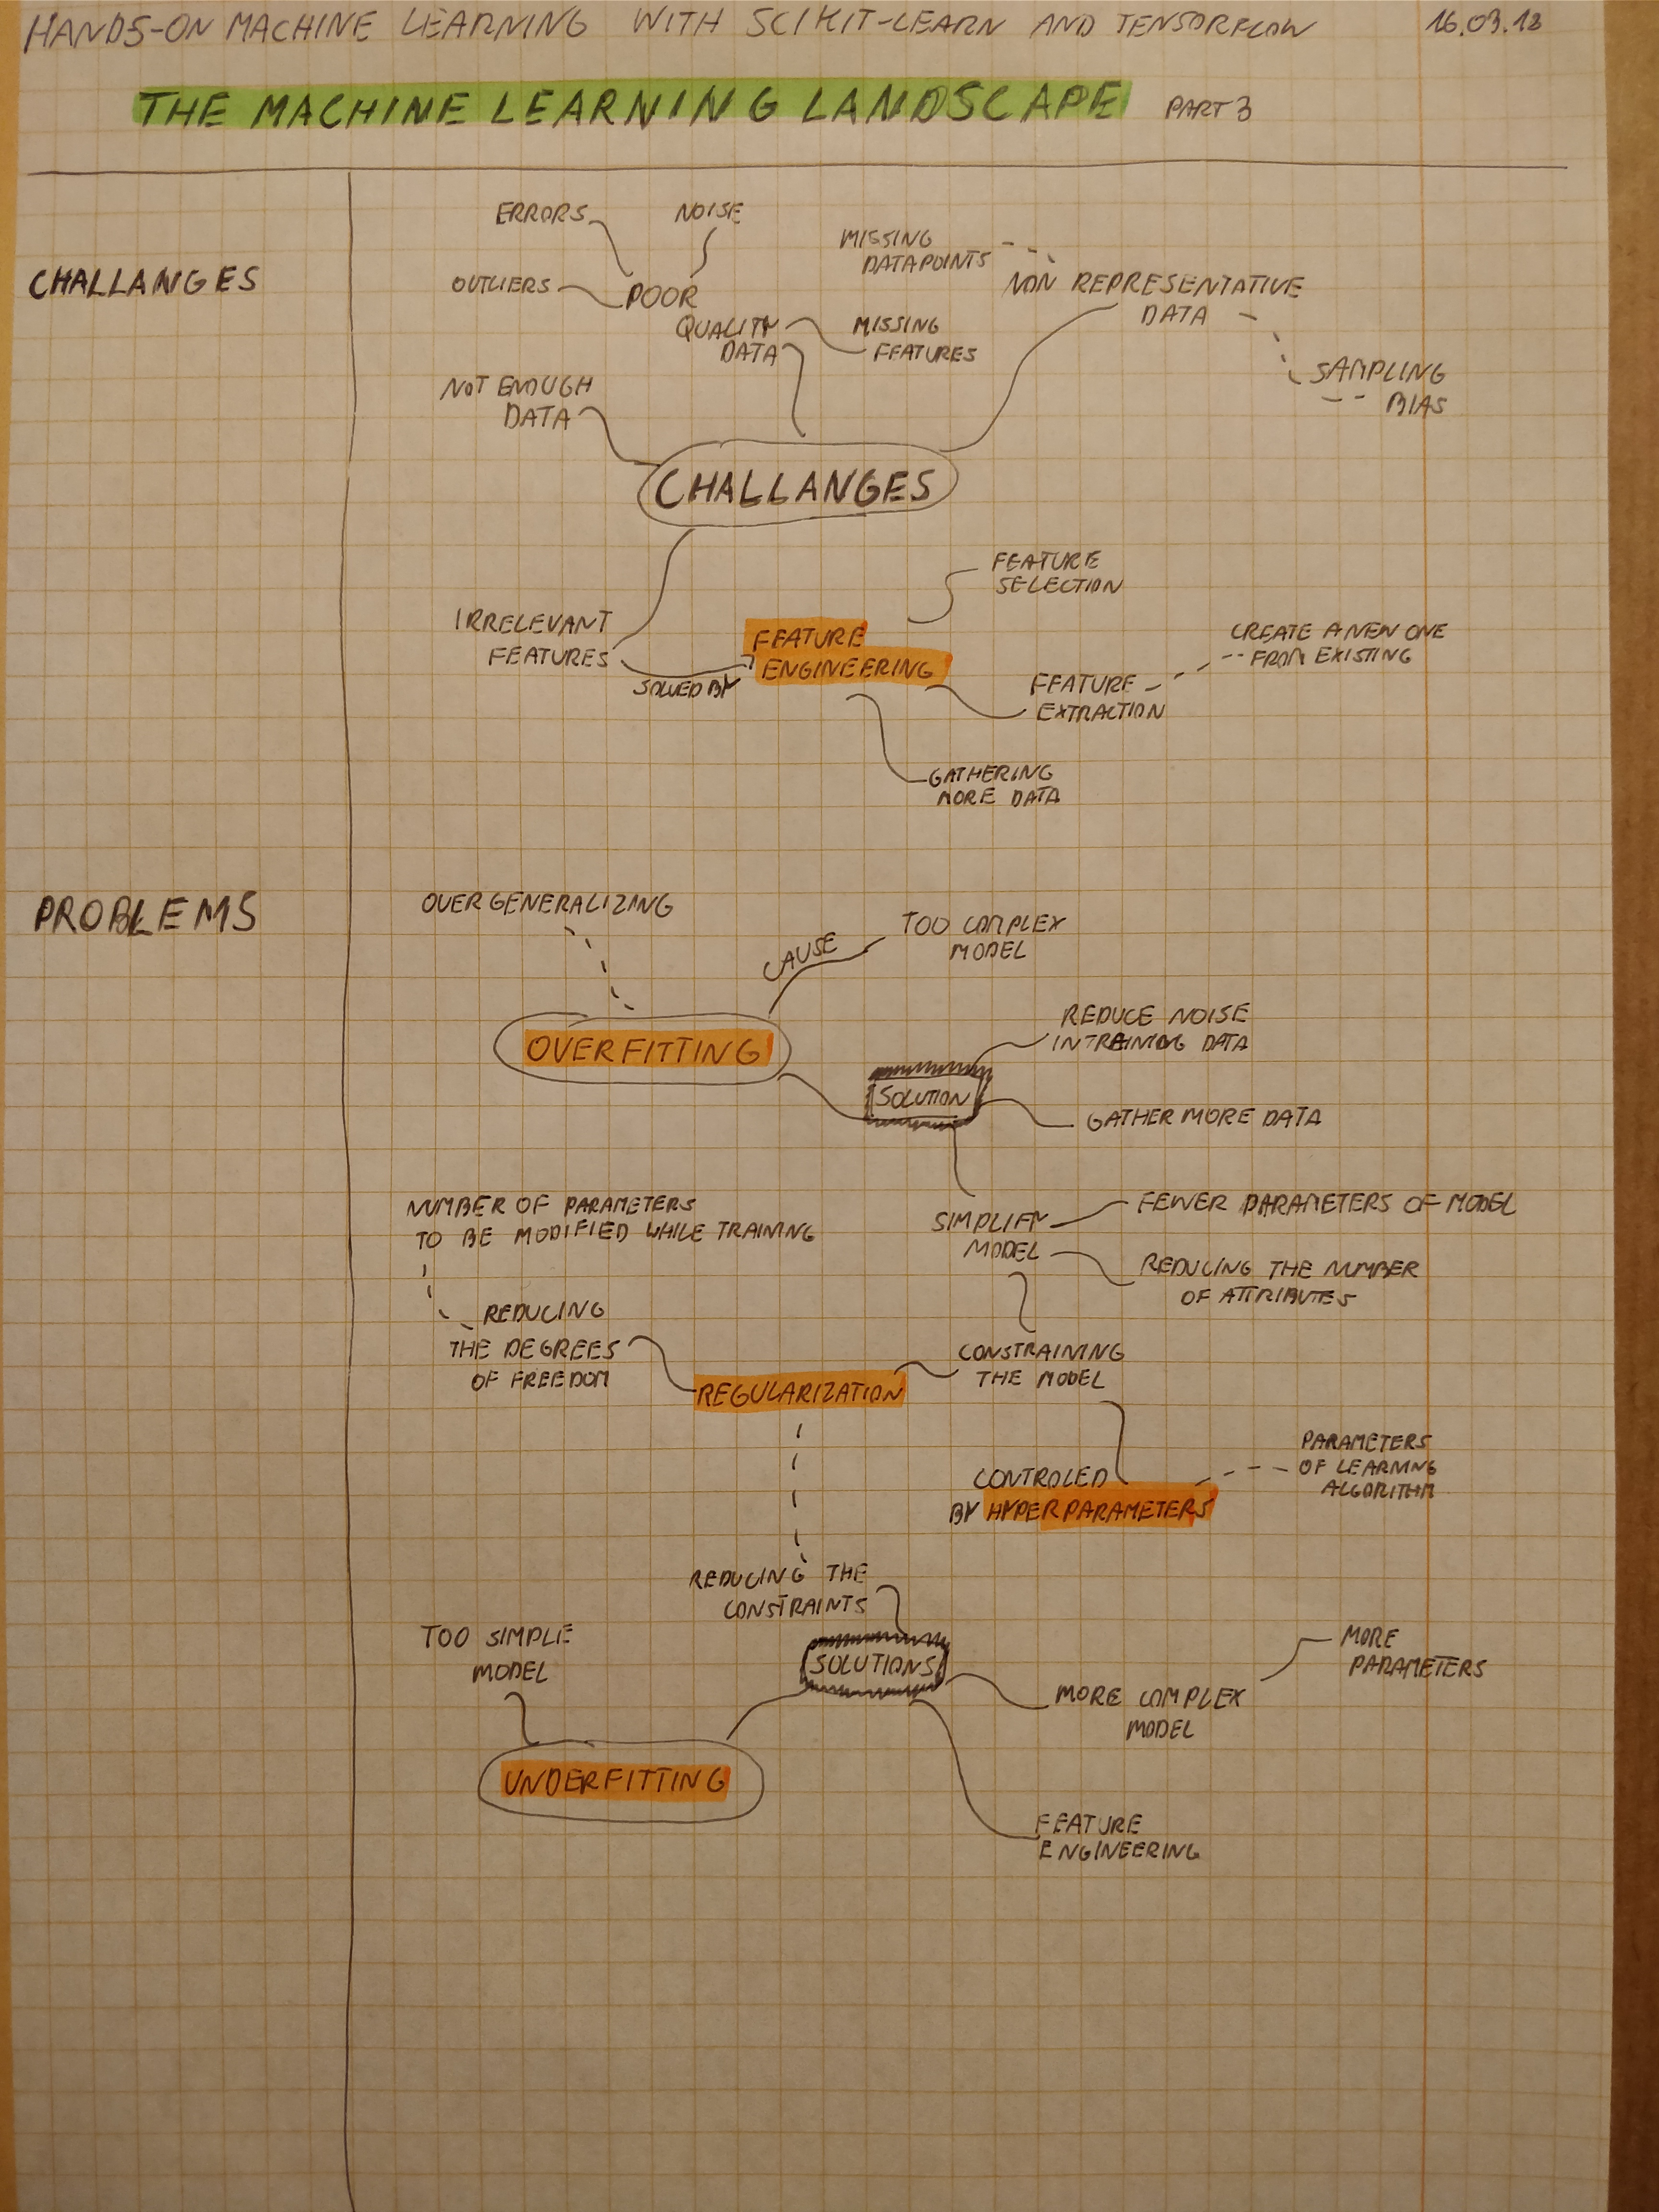 HANDS-ON MACHINE LEARNING WITH SCIKIT-LEARN AND TENSORFLOW 16.03.18
THE MACHINE LEARNING LANDSCAPE PART 3
CHALLANGES
ERRORS
NOISE
OUTLIERS
POOR
QUALITY
DATA
MISSING
DATAPOINTS
MISSING
FEATURES
NON REPRESENTATIVE
DATA
SAMPLING
BIAS
NOT ENOUGH
DATA
CHALLANGES
IRRELEVANT
FEATURES
SOLVED BY
FEATURE
ENGINEERING
FEATURE
SELECTION
FEATURE
EXTRACTION
CREATE A NEW ONE
FROM EXISTING
GATHERING
MORE DATA
PROBLEMS
OVERGENERALIZING
CAUSE
TOO COMPLEX
MODEL
OVERFITTING
SOLUTION
REDUCE NOISE
IN TRAINING DATA
GATHER MORE DATA
SIMPLIFY
MODEL
FEWER PARAMETERS OF MODEL
REDUCING THE NUMBER
OF ATTRIBUTES
NUMBER OF PARAMETERS
TO BE MODIFIED WHILE TRAINING
REDUCING
THE DEGREES
OF FREEDOM
REGULARIZATION
CONSTRAINING
THE MODEL
CONTROLED
BY HYPERPARAMETERS
PARAMETERS
OF LEARNING
ALGORITHM
REDUCING THE
CONSTRAINTS
TOO SIMPLE
MODEL
SOLUTIONS
MORE COMPLEX
MODEL
MORE
PARAMETERS
UNDERFITTING
FEATURE
ENGINEERING